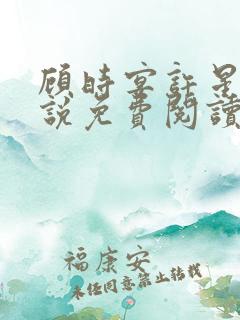 顾时宴許星
説免費閱讀
福康安
未经同意禁止转载